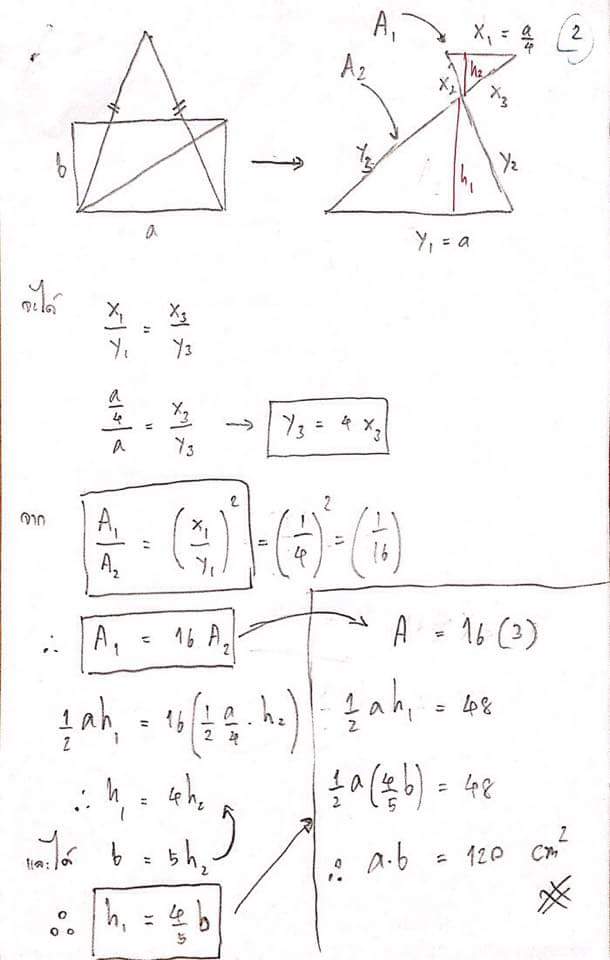 2
A₁
x₁ = a/4
A₂
h₂
x₂
x₃
b
y₃
y₂
h₁
a
y₁ = a
จะได้
x₁/y₁ = x₃/y₃
(a/4)/a = x₃/y₃ → y₃ = 4 x₃
จาก A₁/A₂ = (x₁/y₁)² = (1/4)² = (1/16)
∴ A₁ = 16 A₂
1/2 ah₁ = 16(1/2 a/4 · h₂)
∴ h₁ = 4h₂
และได้ b = 5h₂
∴ h₁ = 4/5 b
A = 16(3)
1/2 a h₁ = 48
1/2 a(4/5 b) = 48
∴ a·b = 120 cm²